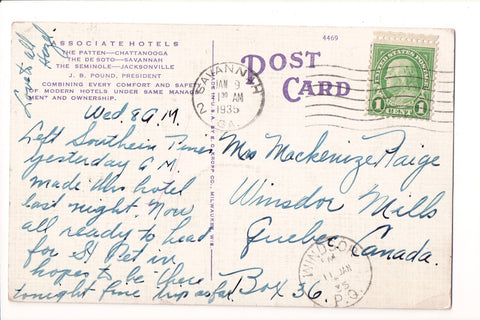 4469
ASSOCIATE HOTELS
THE PATTEN—CHATTANOOGA
THE DE SOTO—SAVANNAH
THE SEMINOLE—JACKSONVILLE
J. B. POUND, PRESIDENT
COMBINING EVERY COMFORT AND SAFETY
OF MODERN HOTELS UNDER SAME MANAGE-
MENT AND OWNERSHIP.
all
Wed. 8 A.M.
Left Southern Pines
yesterday A M.
made this hotel
last night. Now
all ready to head
for St Pet in
hopes to be there
tonight fine trip so far
POST
CARD
SAVANNAH
JAN 9
AM
1935
GA.
2
UNITED STATES POSTAGE
1 1
CENT
Mrs Mackenzie Paige
Winsdor Mills
Quebec, Canada.
Box 36.
WINDSOR
P.Q.